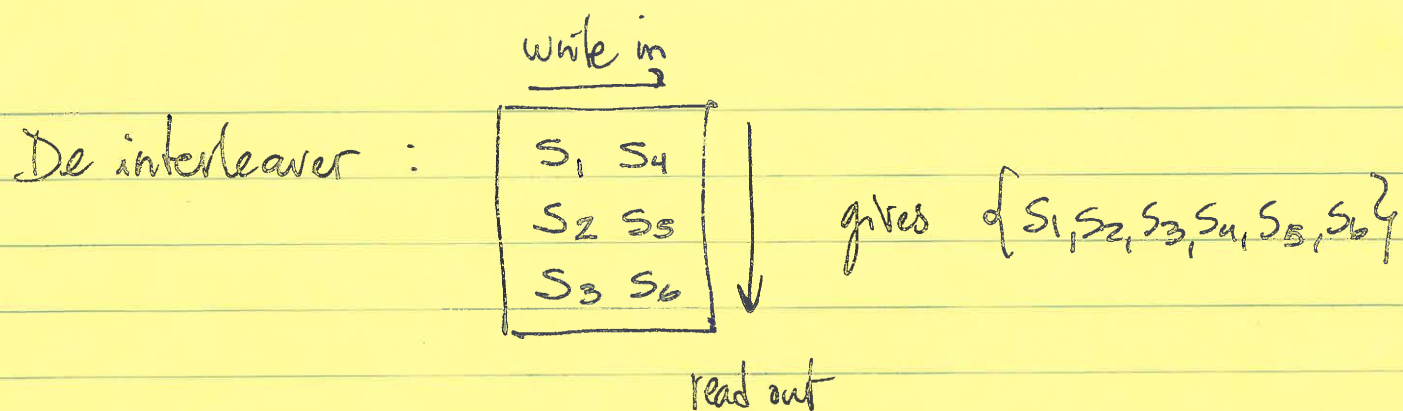 write in
De interleaver :
S₁ S₄
S₂ S₅
S₃ S₆
gives {S₁,S₂,S₃,S₄,S₅,S₆}
read out